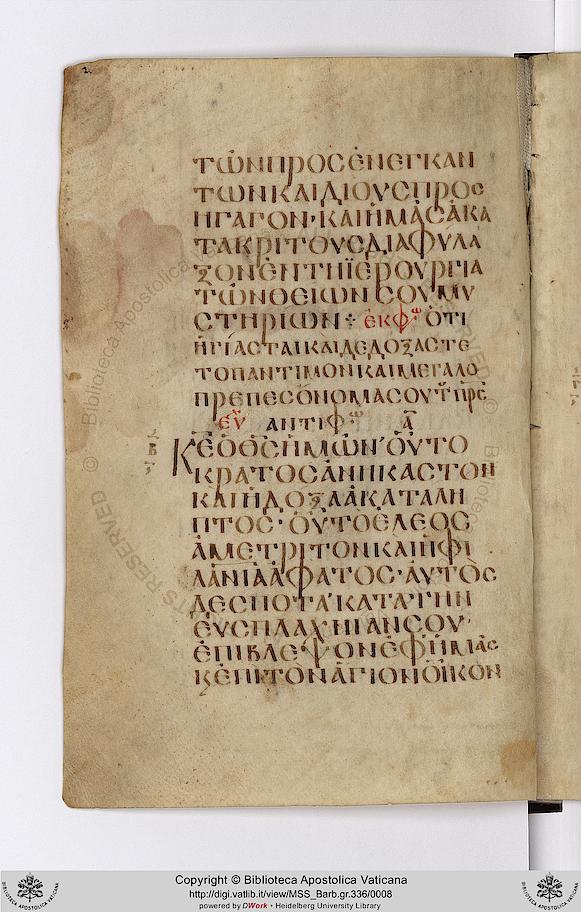 ΤῶΝΠΡΟΣΕΝΕΓΚΑΝ
ΤΩΝΚΑΙΔΙΟΥΣΠΡΟΣ
ΗΓΑΓΟΝ·ΚΑΙΗΜᾶΣἈΚΑ
ΤΑΚΡΙΤΟΥΣΔΙΑΦΥΛΑ
ΞΟΝἘΝΤΗΪΕΡΟΥΡΓΙΑ
ΤῶΝΘΕΙΩΝΣΟΥΜΥ
ΣΤΗΡΙΩΝ ἐΚΦΩ ὍΤΙ
ΗΓΙΑΣΤΑΙΚΑΙΔΕΔΟΞΑΣΤΕ
ΤΟΠΑΝΤΙΜΟΝΚΑΙΜΕΓΑΛΟ
ΠΡΕΠΕΣΟΝΟΜΑΣΟΥΤΠΡΣ
ΕΥ ΑΝΤΙΦΩ Α
ΚΕΟΘΣΗΜῶΝ·ΟΥΤΟ
ΚΡΑΤΟΣΑΝΗΚΑΣΤΟΝ
ΚΑΙΗΔΟΞΑΑΚΑΤΑΛΗ
ΠΤΟΣ·ΟΥΤΟΕΛΕΟΣ
ἈΜΕΤΡΙΤΟΝΚΑΙΗΦΙ
ΛΑΝΙΑΑΦΑΤΟΣ·ΑΥΤΟΣ
ΔΕΣΠΟΤΑΚΑΤΑΤΗΝ
ΕΥΣΠΛΑΧΝΙΑΝΣΟΥ·
ΕΠΙΒΛΕΨΟΝΕΦΗΜᾶΣ
ΚΕΠΙΤΟΝΑΓΙΟΝΟΙΚΟΝ
© Biblioteca Apostolica Vaticana
RIGHTS RESERVED
Copyright © Biblioteca Apostolica Vaticana
http://digi.vatlib.it/view/MSS_Barb.gr.336/0008
powered by DWork • Heidelberg University Library